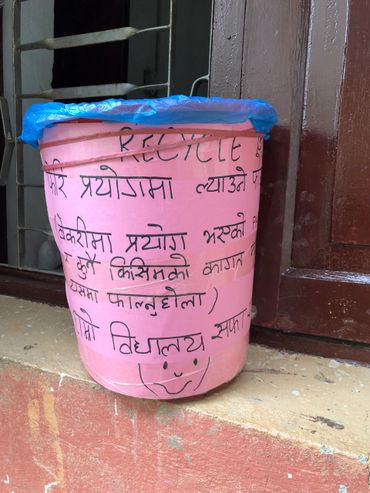 RECYCLE
फेरि प्रयोगमा ल्याउने
बेकरीमा प्रयोग भएको
कुनै किसिमको कागत
यसमा फाल्नुहोला)
विद्यालय सफा